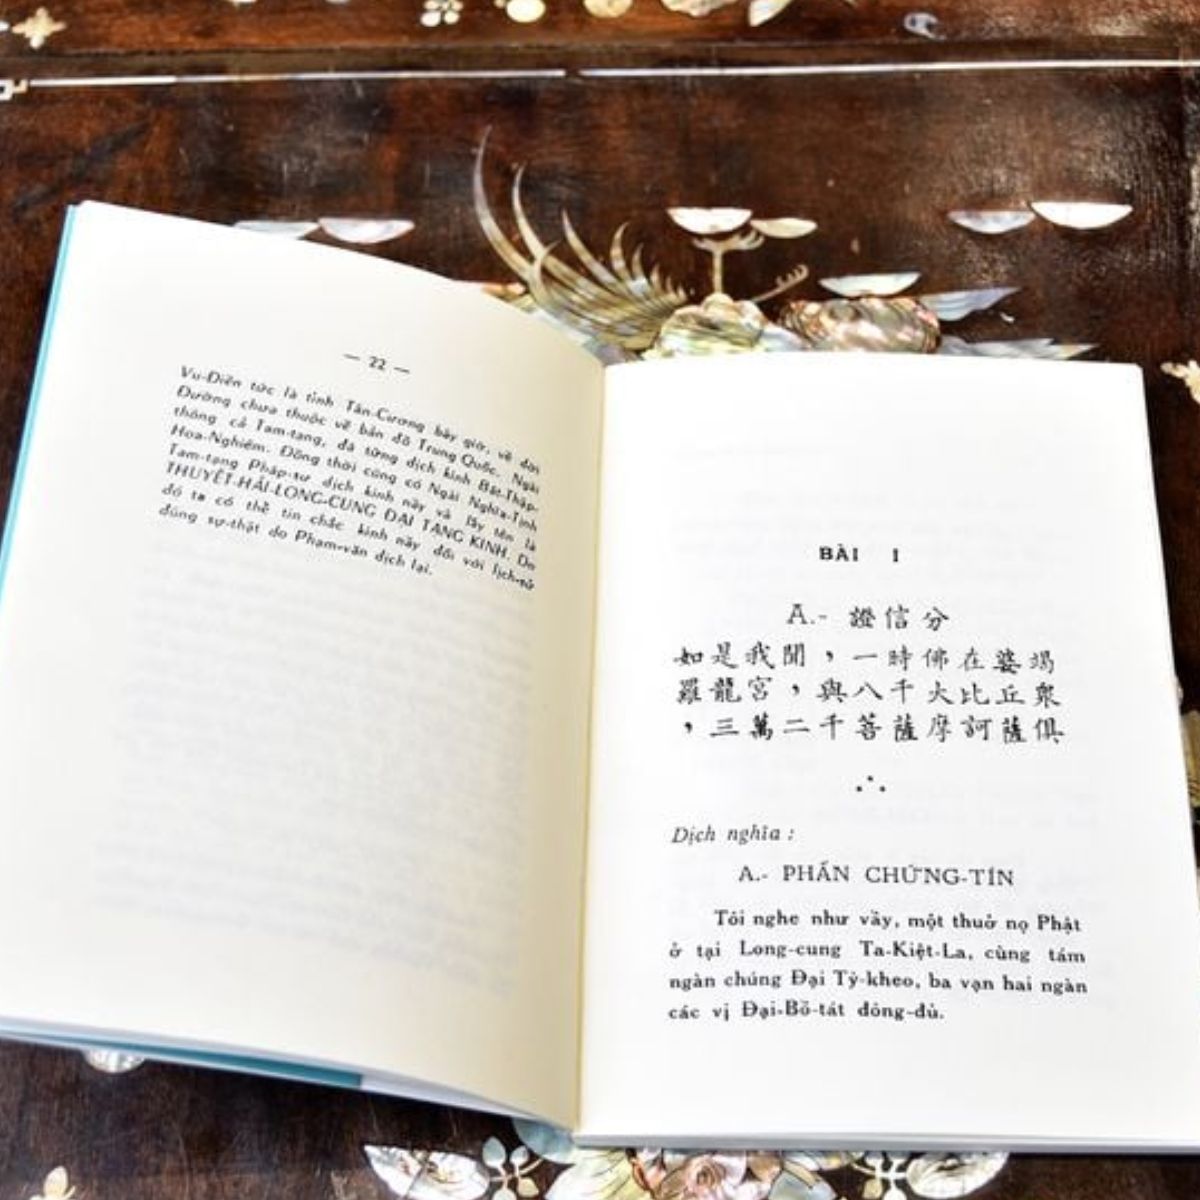 — 22 —
Vu-Điền tức là tỉnh Tân-Cương bây giờ, về đời
Đường chưa thuộc về bản đồ Trung Quốc. Ngài
thông cả Tam-tạng, đã từng dịch kinh Bát-Thập-
Hoa-Nghiêm. Đồng thời cũng có Ngài Nghĩa-Tịnh
Tam-tạng Pháp-sư dịch kinh nầy và lấy tên là
THUYẾT-HẢI-LONG-CUNG ĐẠI TẠNG KINH. Do
đó ta có thể tin chắc kinh nầy đối với lịch-sử
đúng sự-thật do Phạm-văn dịch lại.
BÀI I
A.- 證信分
如是我聞，一時佛在婆竭
羅龍宮，與八千大比丘衆
，三萬二千菩薩摩訶薩俱
Dịch nghĩa :
A.- PHẦN CHỨNG-TÍN
Tôi nghe như vầy, một thuở nọ Phật
ở tại Long-cung Ta-Kiệt-La, cùng tám
ngàn chúng Đại Tỳ-kheo, ba vạn hai ngàn
các vị Đại-Bồ-tát đông-đủ.